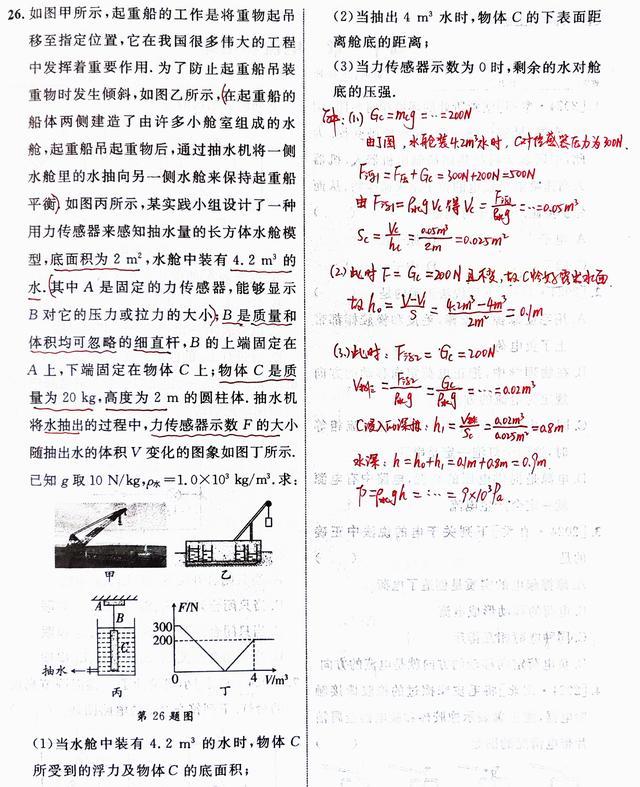 26. 如图甲所示,起重船的工作是将重物起吊
移至指定位置,它在我国很多伟大的工程
中发挥着重要作用.为了防止起重船吊装
重物时发生倾斜,如图乙所示,(在起重船的
船体两侧建造了由许多小舱室组成的水
舱,起重船吊起重物后,通过抽水机将一侧
水舱里的水抽向另一侧水舱来保持起重船
平衡)如图丙所示,某实践小组设计了一种
用力传感器来感知抽水量的长方体水舱模
型,底面积为 2 m²,水舱中装有 4.2 m³ 的
水.(其中 A 是固定的力传感器,能够显示
B 对它的压力或拉力的大小);B 是质量和
体积均可忽略的细直杆,B 的上端固定在
A 上,下端固定在物体 C 上;物体 C 是质
量为 20 kg,高度为 2 m 的圆柱体.抽水机
将水抽出的过程中,力传感器示数 F 的大小
随抽出水的体积 V 变化的图象如图丁所示.
已知 g 取 10 N/kg,ρ水=1.0×10³ kg/m³.求:
甲
乙
A
B
C
抽水
丙
F/N
300
200
0
4
V/m³
丁
第 26 题图
(1)当水舱中装有 4.2 m³ 的水时,物体 C
所受到的浮力及物体 C 的底面积;
(2)当抽出 4 m³ 水时,物体 C 的下表面距
离舱底的距离;
(3)当力传感器示数为 0 时,剩余的水对舱
底的压强.
解:(1) Gc=mcg=…=200N
由丁图,水舱装4.2m³水时,C对传感器压力为300N.
F浮1=F压+Gc=300N+200N=500N
由F浮1=ρ水gVc 得 Vc=F浮1/ρ水g=…=0.05m³
Sc=Vc/hc=0.05m³/2m=0.025m²
(2)此时F=Gc=200N且不变,故C恰好露出水面
故h0=V-V1/S=4.2m³-4m³/2m²=0.1m
(3)此时:F浮2=Gc=200N
V排2=F浮2/ρ水g=Gc/ρ水g=…=0.02m³
C浸入的深度:h1=V排2/Sc=0.02m³/0.025m²=0.8m
水深:h=h0+h1=0.1m+0.8m=0.9m
P=ρ水gh=…=9×10³Pa.